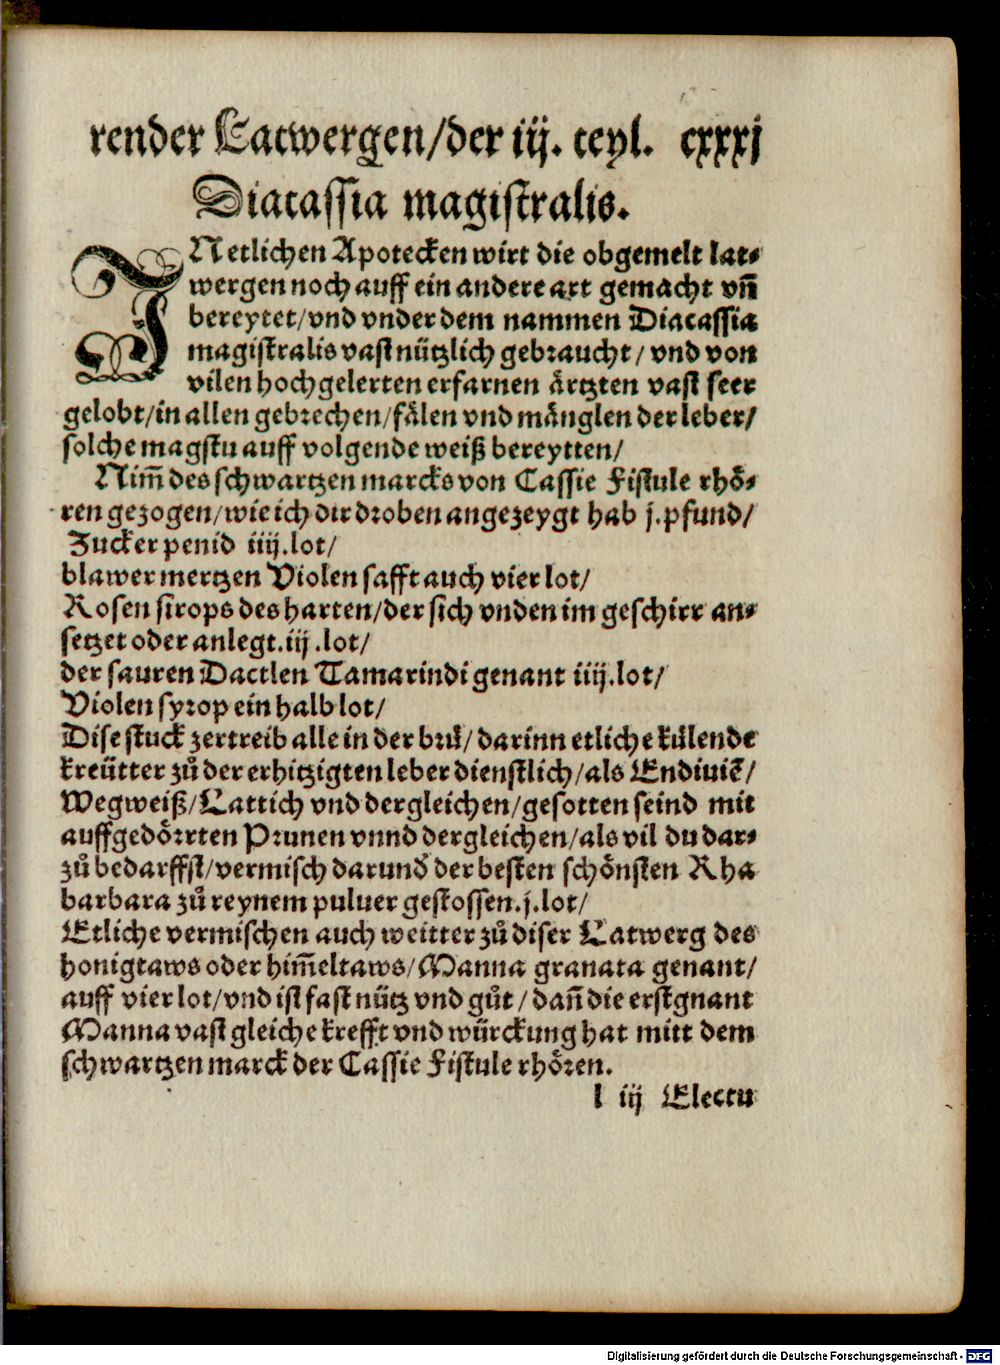 render Latwergen/der iij. teyl. cxxxj
Diacassia magistralis.
IN etlichen Apotecken wirt die obgemelt lat⸗
wergen noch auff ein andere art gemacht vñ
bereytet/vnd vnder dem nammen Diacassia
magistralis vast nützlich gebraucht/ vnd von
vilen hochgelerten erfarnen ärtzten vast seer
gelobt/in allen gebrechen/fälen vnd mänglen der leber/
solche magstu auff volgende weiß bereytten/
Nim̃ des schwartzen marcks von Cassie Fistule rhö⸗
ren gezogen/wie ich dir droben angezeygt hab j.pfund/
Zucker penid iiij.lot/
blawer mertzen Violen safft auch vier lot/
Rosen sirops des harten/der sich vnden im geschirr an⸗
setzet oder anlegt.iij.lot/
der sauren Dactlen Tamarindi genant iiij.lot/
Violen syrop ein halb lot/
Dise stuck zertreib alle in der brü/ darinn etliche külende
kreütter zů der erhitzigten leber dienstlich/als Endiuiẽ/
Wegweiß/Lattich vnd dergleichen/gesotten seind mit
auffgedörrten Prunen vnnd dergleichen/als vil du dar⸗
zů bedarffst/vermisch darund̕ der besten schönsten Rha
barbara zů reynem puluer gestossen.j.lot/
Etliche vermischen auch weitter zů diser Latwerg des
honigtaws oder him̃eltaws/Manna granata genant/
auff vier lot/vnd ist fast nütz vnd gůt/ dañ die erstgnant
Manna vast gleiche krefft vnd würckung hat mitt dem
schwartzen marck der Cassie Fistule rhören.
l iij Electu
Digitalisierung gefördert durch die Deutsche Forschungsgemeinschaft - DFG